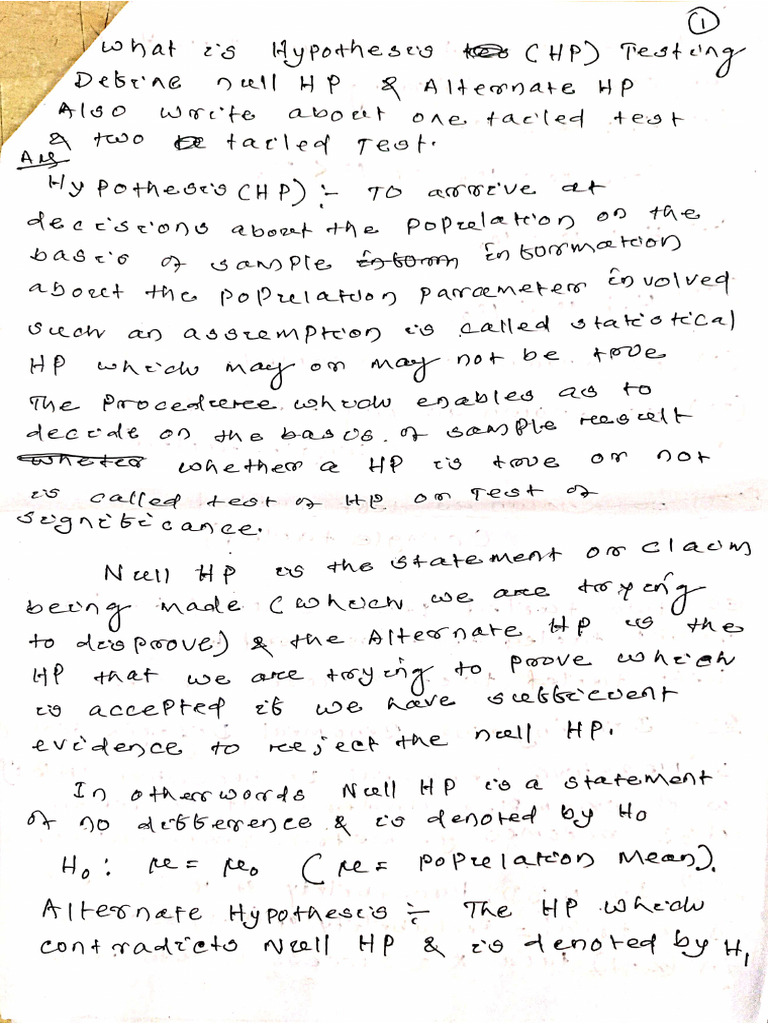 1
What is Hypothesis (HP) Testing
Define null HP & Alternate HP
Also write about one tailed test
& two tailed Test.
Ans
Hypothesis (HP) :- To arrive at
decisions about the population on the
basis of sample information
about the population parameter involved
such an assumption is called statistical
HP which may or may not be true
The Procedure which enables as to
decide on the basis of sample result
whether a HP is true or not
is called test of HP or Test of
significance.
Null HP is the statement or claim
being made (which we are trying
to disprove) & the Alternate HP is the
HP that we are trying to prove which
is accepted if we have sufficient
evidence to reject the null HP.
In other words Null HP is a statement
of no difference & is denoted by H₀
H₀ : μ = μ₀ (μ = population Mean).
Alternate Hypothesis :- The HP which
contradicts Null HP & is denoted by H₁